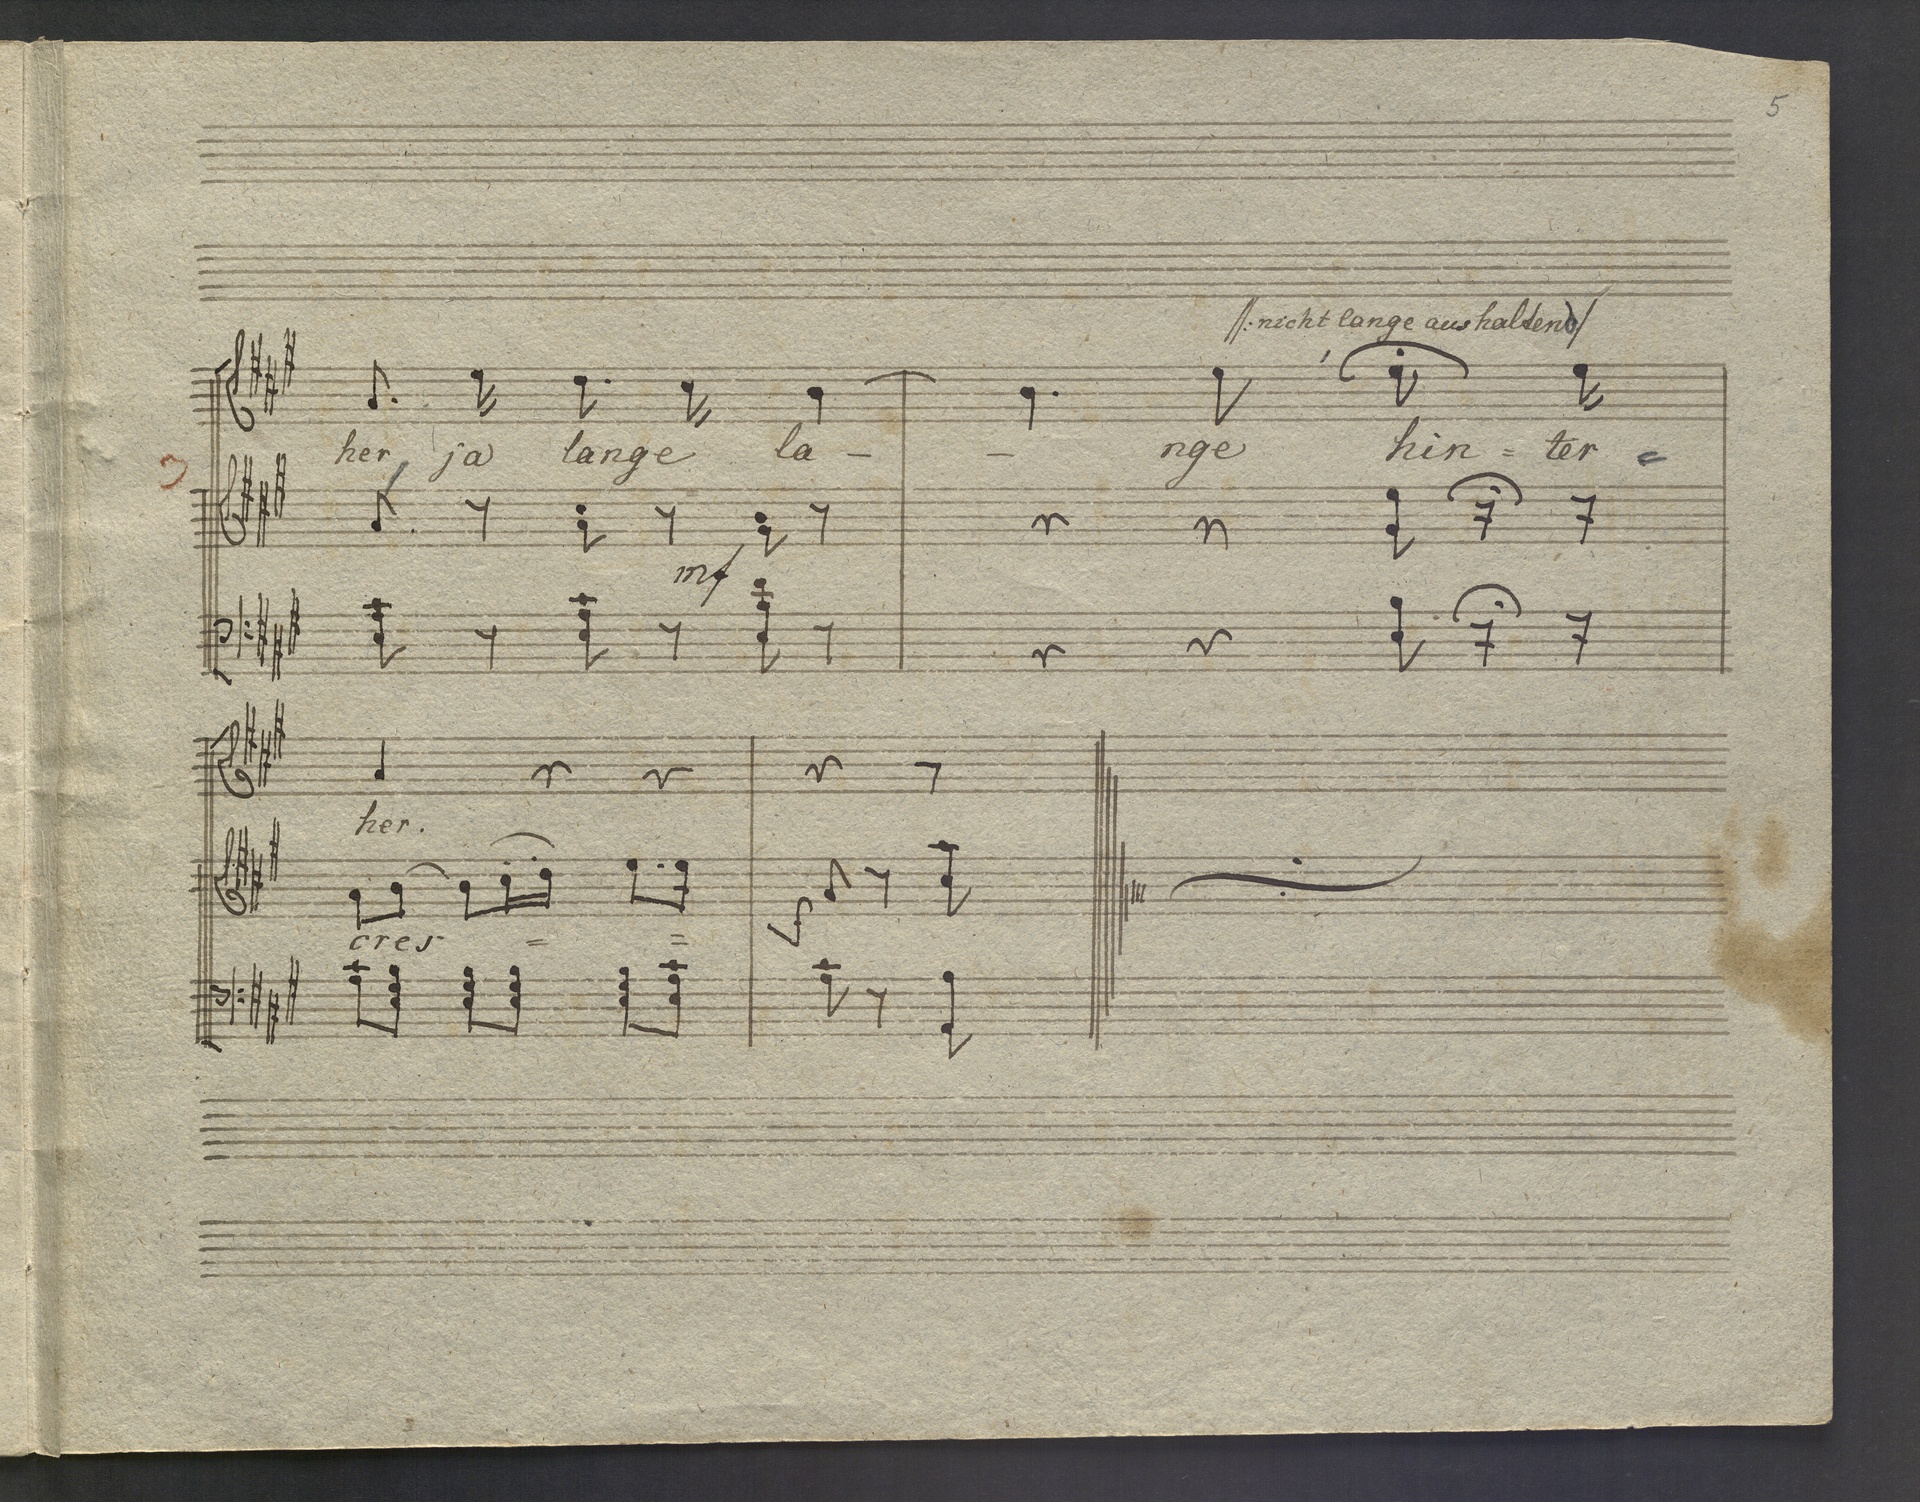 5
//: nicht lange aushaltend /
her ja lange la - - nge hin = ter =
mf
her.
cres = =
f